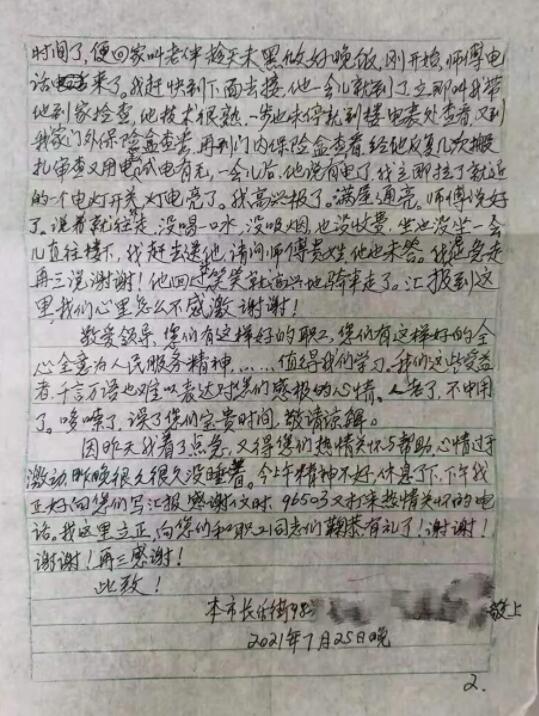 时间了,便回家叫老伴趁天未黑做好晚饭,刚开始,师傅电
话来了。我赶快到下面去接,他一会儿就到了立即叫我带
他到家检查,他技术很熟,一步也未停就到楼电表处查看,又到
我家门外保险盒查看,再到门内保险盒查看,经他反复几次搬
扎审查又用电试电有无,一会儿后,他说有电了,我立即拉了就近
的一个电灯开关,灯电亮了。我高兴极了。满屋通亮。师傅说好
了。说着就往走,没喝一口水,没吸烟,也没收费,坐也没坐一会
儿直往楼下,我赶去送他,请问师傅贵姓,他也未答。我急走
再三说谢谢!他回过笑笑就高兴地骑车走了。汇报到这
里,我们心里怎么不感激谢谢!
敬爱领导,您们有这样好的职工,您们有这样好的全
心全意为人民服务精神,……值得我们学习。我们这些受益
者,千言万语也难以表达对您们感极的心情。人老了,不中用
了。哆嗦了,误了您们宝贵时间,敬请谅解。
因昨天我着了点急,又得您们热情关怀与帮助,心情过于
激动,昨晚很久很久没睡着。今上午精神不好,休息了下,下午我
正好向您们写汇报感谢信时,96503又打来热情关怀的电
话。我这里立正,向您们和职工同志们鞠恭有礼了!谢谢!
谢谢!再三感谢!
此致!
本市长乐街98 敬上
2021年7月25日晚
2.